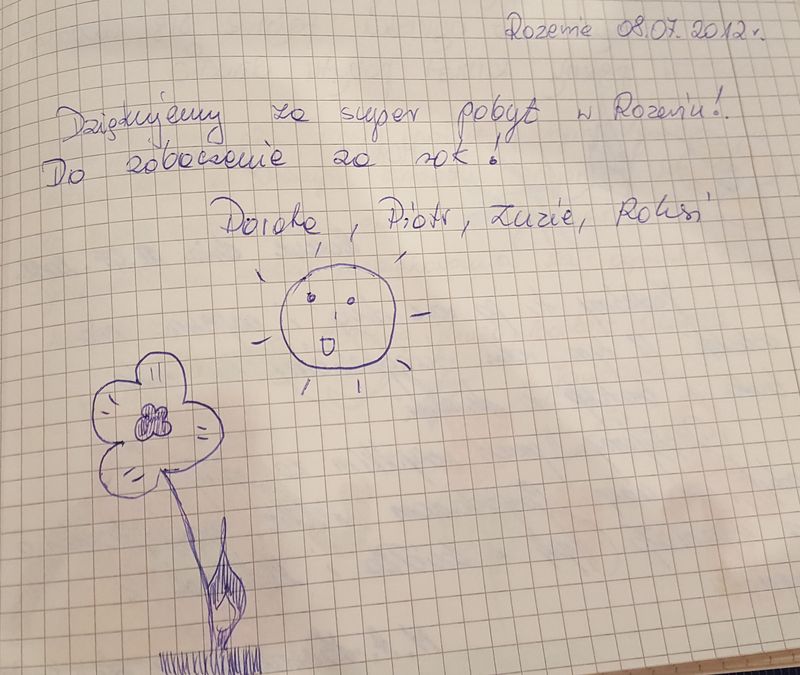 Rozewie 08.07.2012r.
Dziękujemy za super pobyt w Rozewiu!
Do zobaczenia za rok!
Dorota, Piotr, Zuzia, Roksi